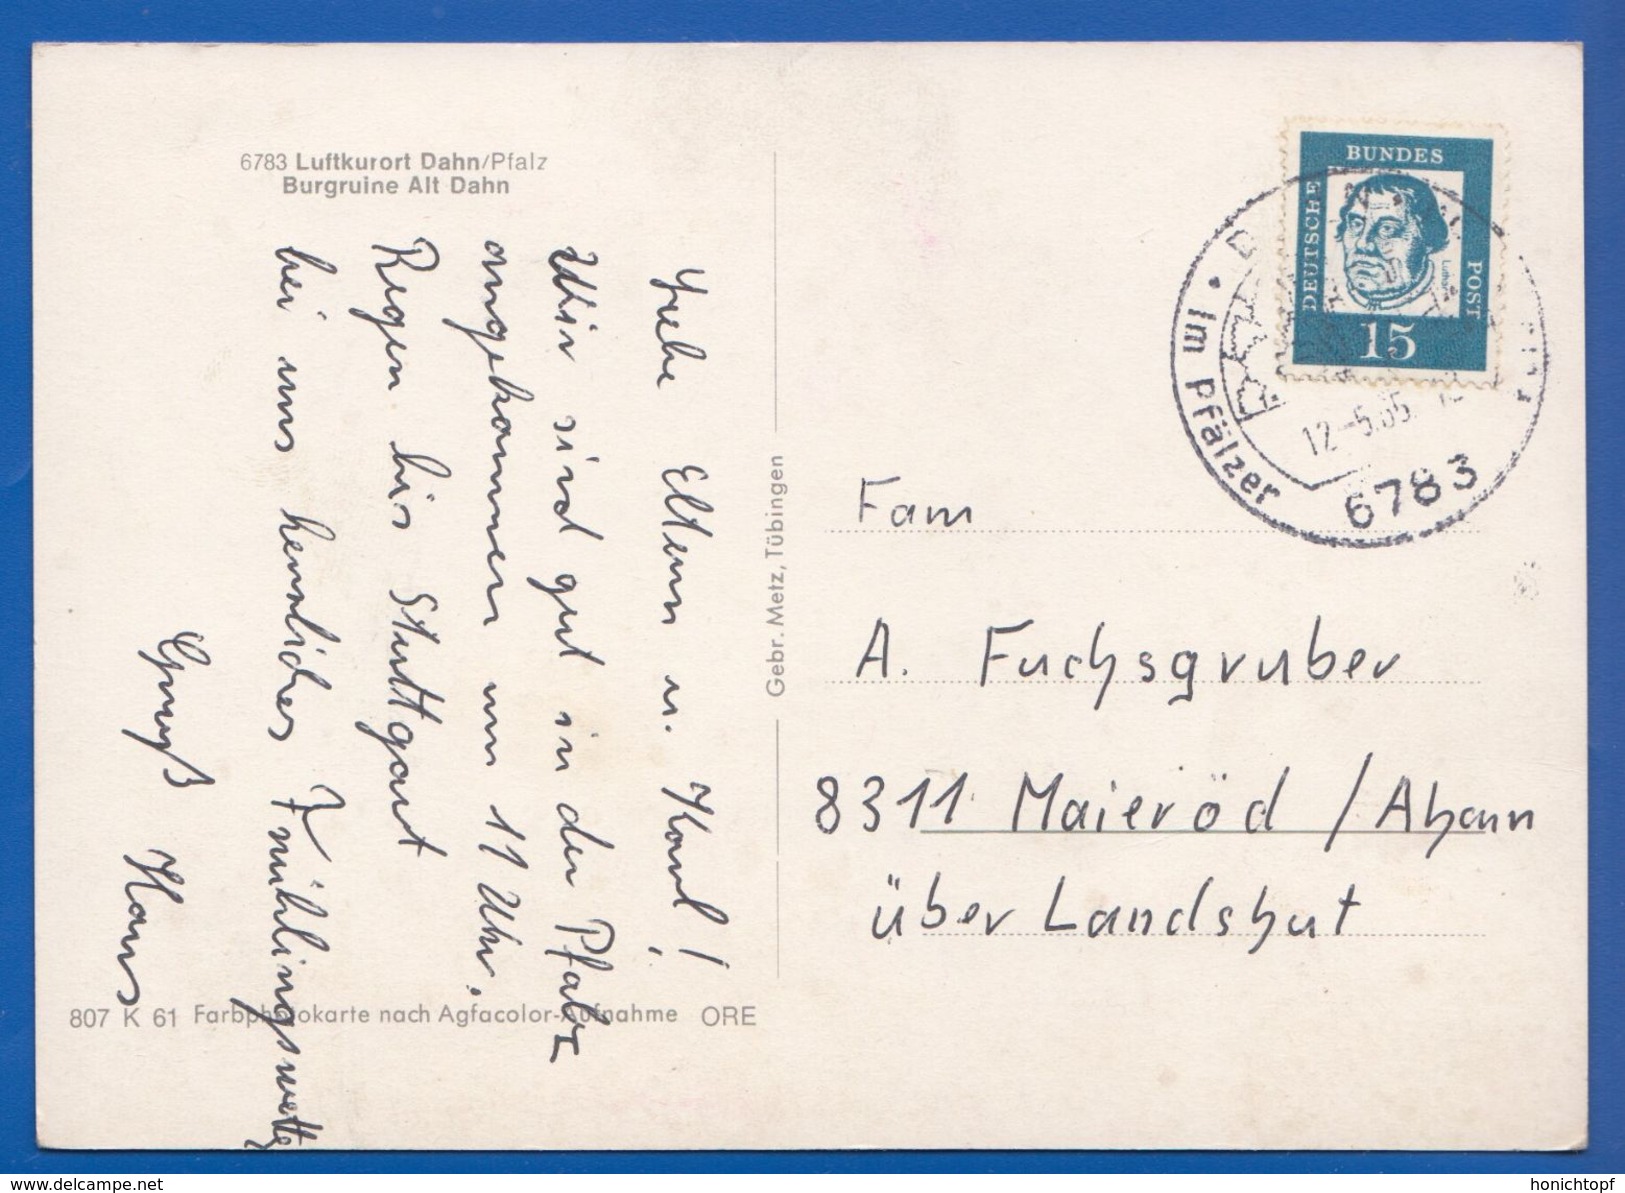 6783 Luftkurort Dahn/Pfalz
Burgruine Alt Dahn
Liebe Eltern u. Karl!
Wir sind gut in der Pfalz
angekommen um 11 Uhr.
Regen bis Stuttgart
bei uns herrliches Frühlingswetter
Gruß Hans
807 K 61 Farbphotokarte nach Agfacolor-Aufnahme ORE
Gebr. Metz, Tübingen
DEUTSCHE BUNDES POST
Luther
15
im Pfälzer
12.-5.65
6783
Fam
A. Fuchsgruber
8311 Maieröd / Aham
über Landshut
www.delcampe.net
honichtopf